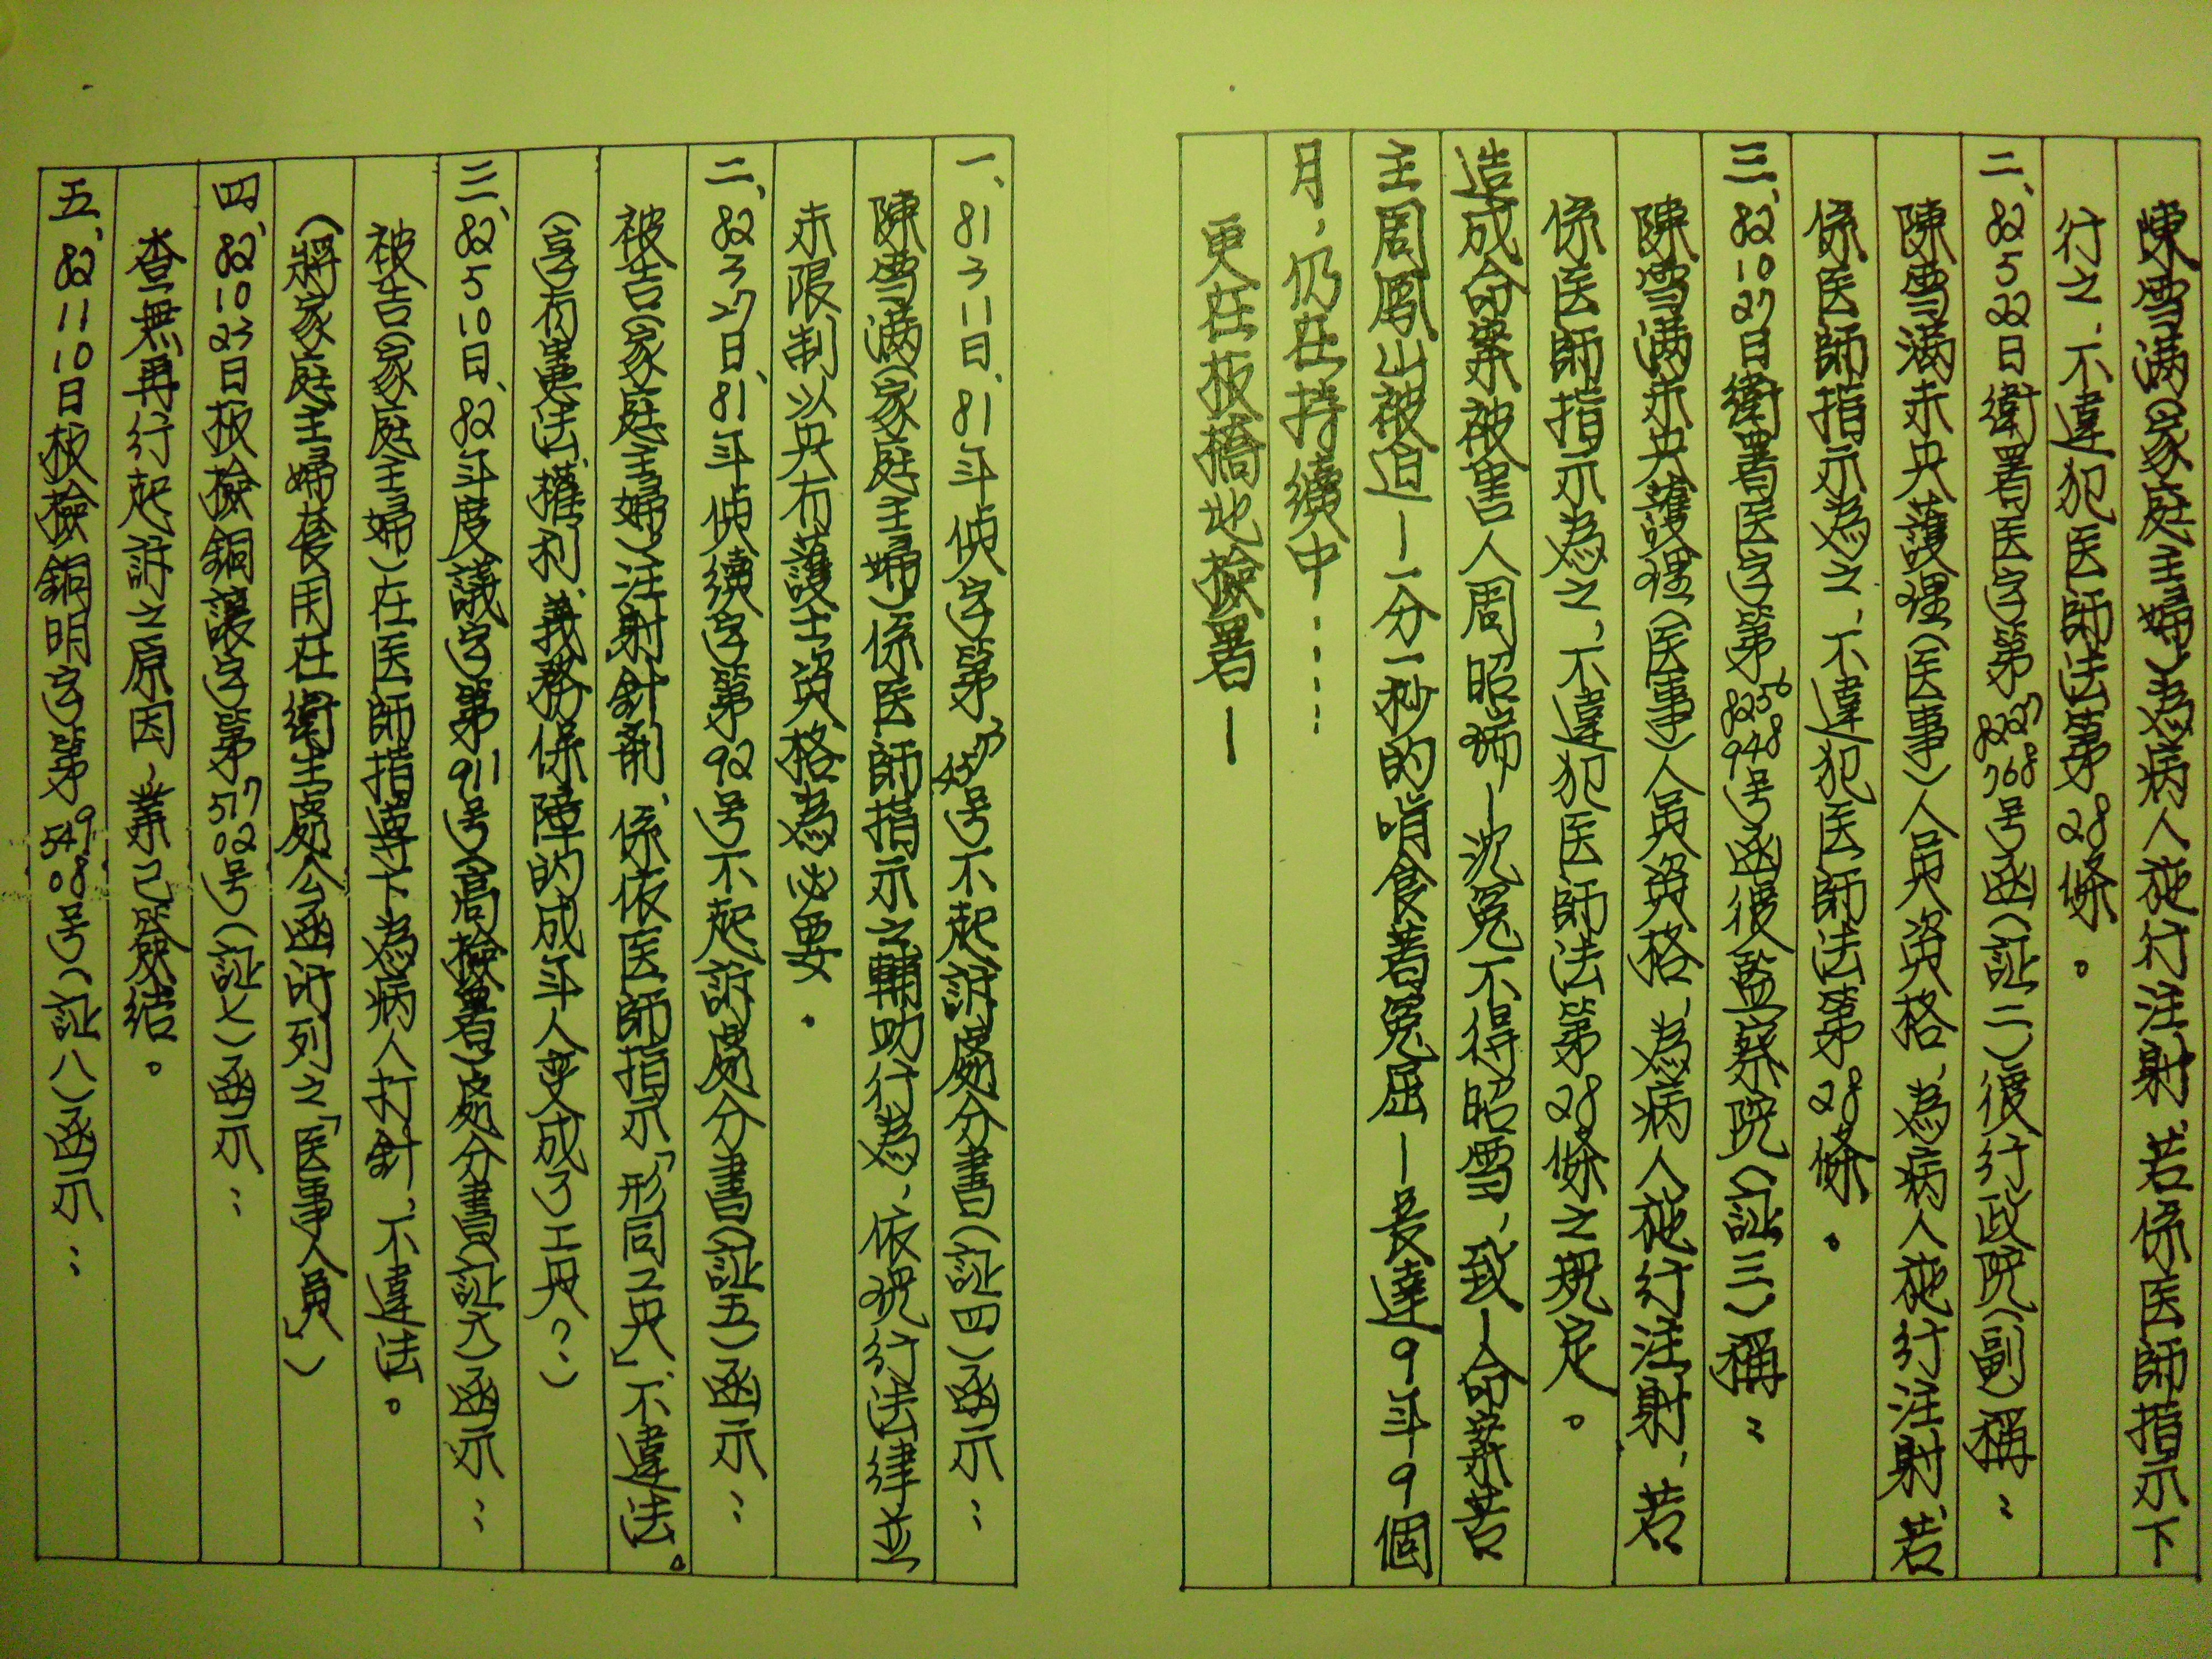 陳雪滿(家庭主婦)為病人施行注射、若係医師指示下
行之、不違犯医師法第28條。
二、82 5 22日衛署医字第8227768号函(証二)復行政院(副)稱:
陳雪滿未具護理(医事)人員資格、為病人施行注射、若
係医師指示為之、不違犯医師法第28條。
三、82 10 27日衛署医字第8256948号函復監察院(証三)稱:
陳雪滿未具護理(医事)人員資格、為病人施行注射、若
係医師指示為之、不違犯医師法第28條之規定。
造成命案被害人周昭瑞—沈冤不得昭雪、致—命案苦
主周鳳山被迫—一分一秒的啃食著冤屈—長達9年9個
月,仍在持續中.....
更在板橋地檢署—
一、81 3 11日、81年偵字第号不起訴處分書(証四)函示:
陳雪滿(家庭主婦)係医師指示之輔助行為、依現行法律並
未限制以具有護士資格為必要.
二、82 3 27日、81年偵續字第92号不起訴處分書(証五)函示:
被告(家庭主婦)注射針劑、係依医師指示「形同工具」不違法。
(享有憲法、權利、義務保障的成年人变成了工具??)
三、82 5 10日、82年度議字第911号(高檢署)處分書(証六)函示:
被告(家庭主婦)在医師指導下為病人打針、不違法。
(將家庭主婦套用在衛生處公函所列之「医事人員」)
四、82 10 23日板檢銅讓字第57702号(証七)函示:
查無再行起訴之原因,業已簽結。
五、82 11 10日板檢銅明字第54908号(証八)函示: